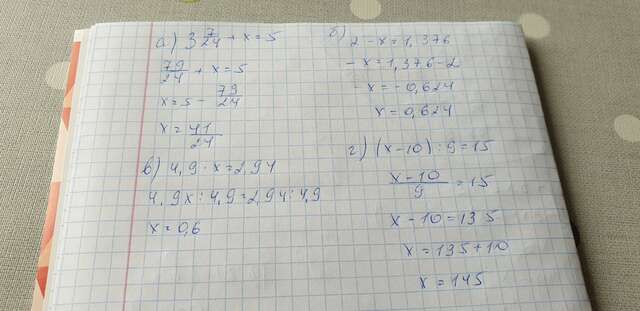 а) 3 7/24 + x = 5
79/24 + x = 5
x = 5 - 79/24
x = 41/24
б) 2 - x = 1,376
- x = 1,376 - 2
- x = - 0,624
x = 0,624
в) 4,9 · x = 2,94
4,9x : 4,9 = 2,94 : 4,9
x = 0,6
г) (x - 10) : 9 = 15
x - 10/9 = 15
x - 10 = 135
x = 135 + 10
x = 145